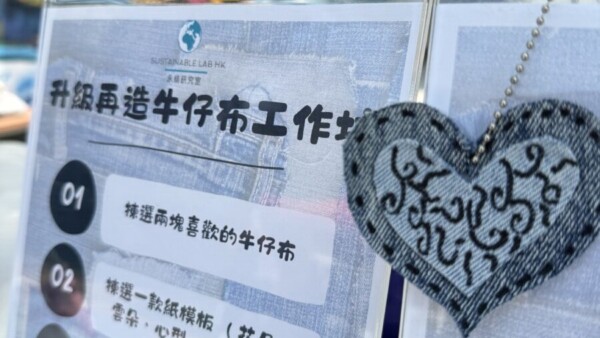 SUSTAINABLE LAB HK
永續研究室
升級再造牛仔布工作
01
揀選兩塊喜歡的牛仔布
02
揀選一款紙模板（花
雲朵，心型